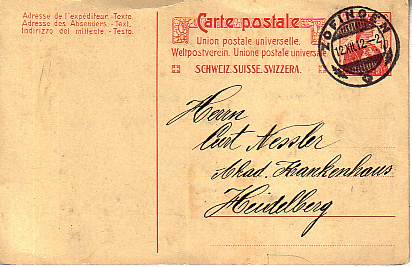 Adresse de l'expéditeur.-Texte.
Adresse des Absenders.-Text.
Indirizzo del mittente.-Testo.
Carte postale
Union postale universelle.
Weltpostverein. Unione postale universale
SCHWEIZ. SUISSE. SVIZZERA.
ZOFINGEN
12.XII.12.-2
Herrn
Curt Nessler
Akad. Krankenhaus
Heidelberg